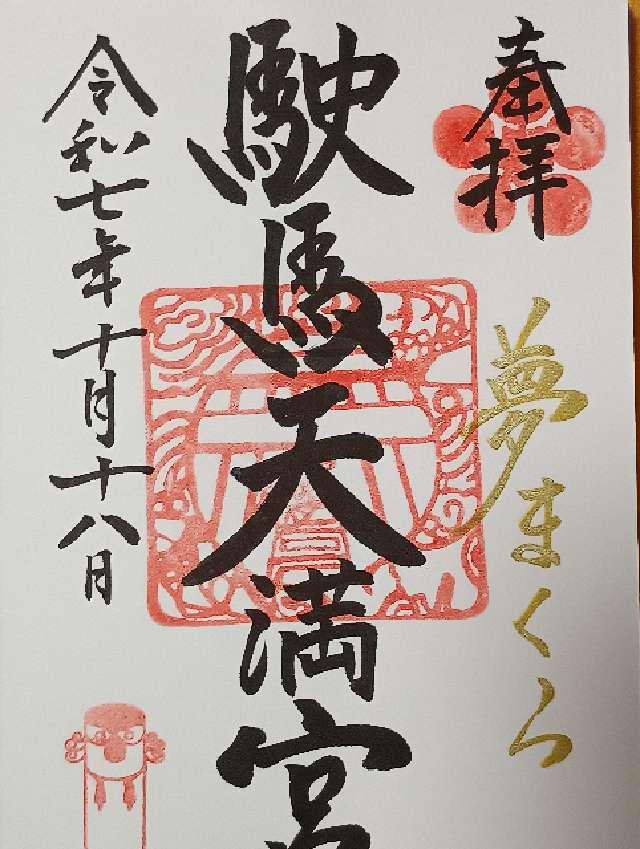 奉拝
夢まくら
駛馬天満宮
令和七年十月十八日